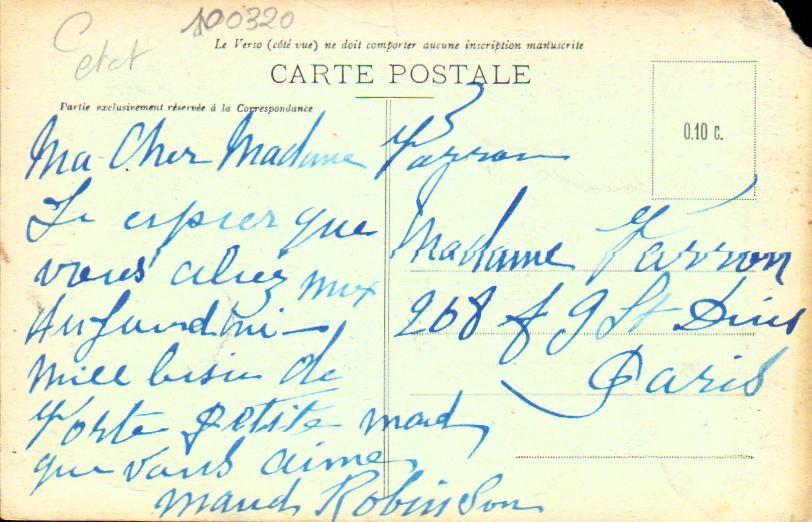 100320
C etat
Le Verso (côté vue) ne doit comporter aucune inscription manuscrite
CARTE POSTALE
Partie exclusivement réservée á la Correspondance
0.10 c.
Ma Cher Madame Farron
Je espier que
vous allez mix
Aujourdhui
mille bisie de
Votre petite mad
que vous aime
Maud Robinson
Madame Farron
268 f g St Dinis
Paris